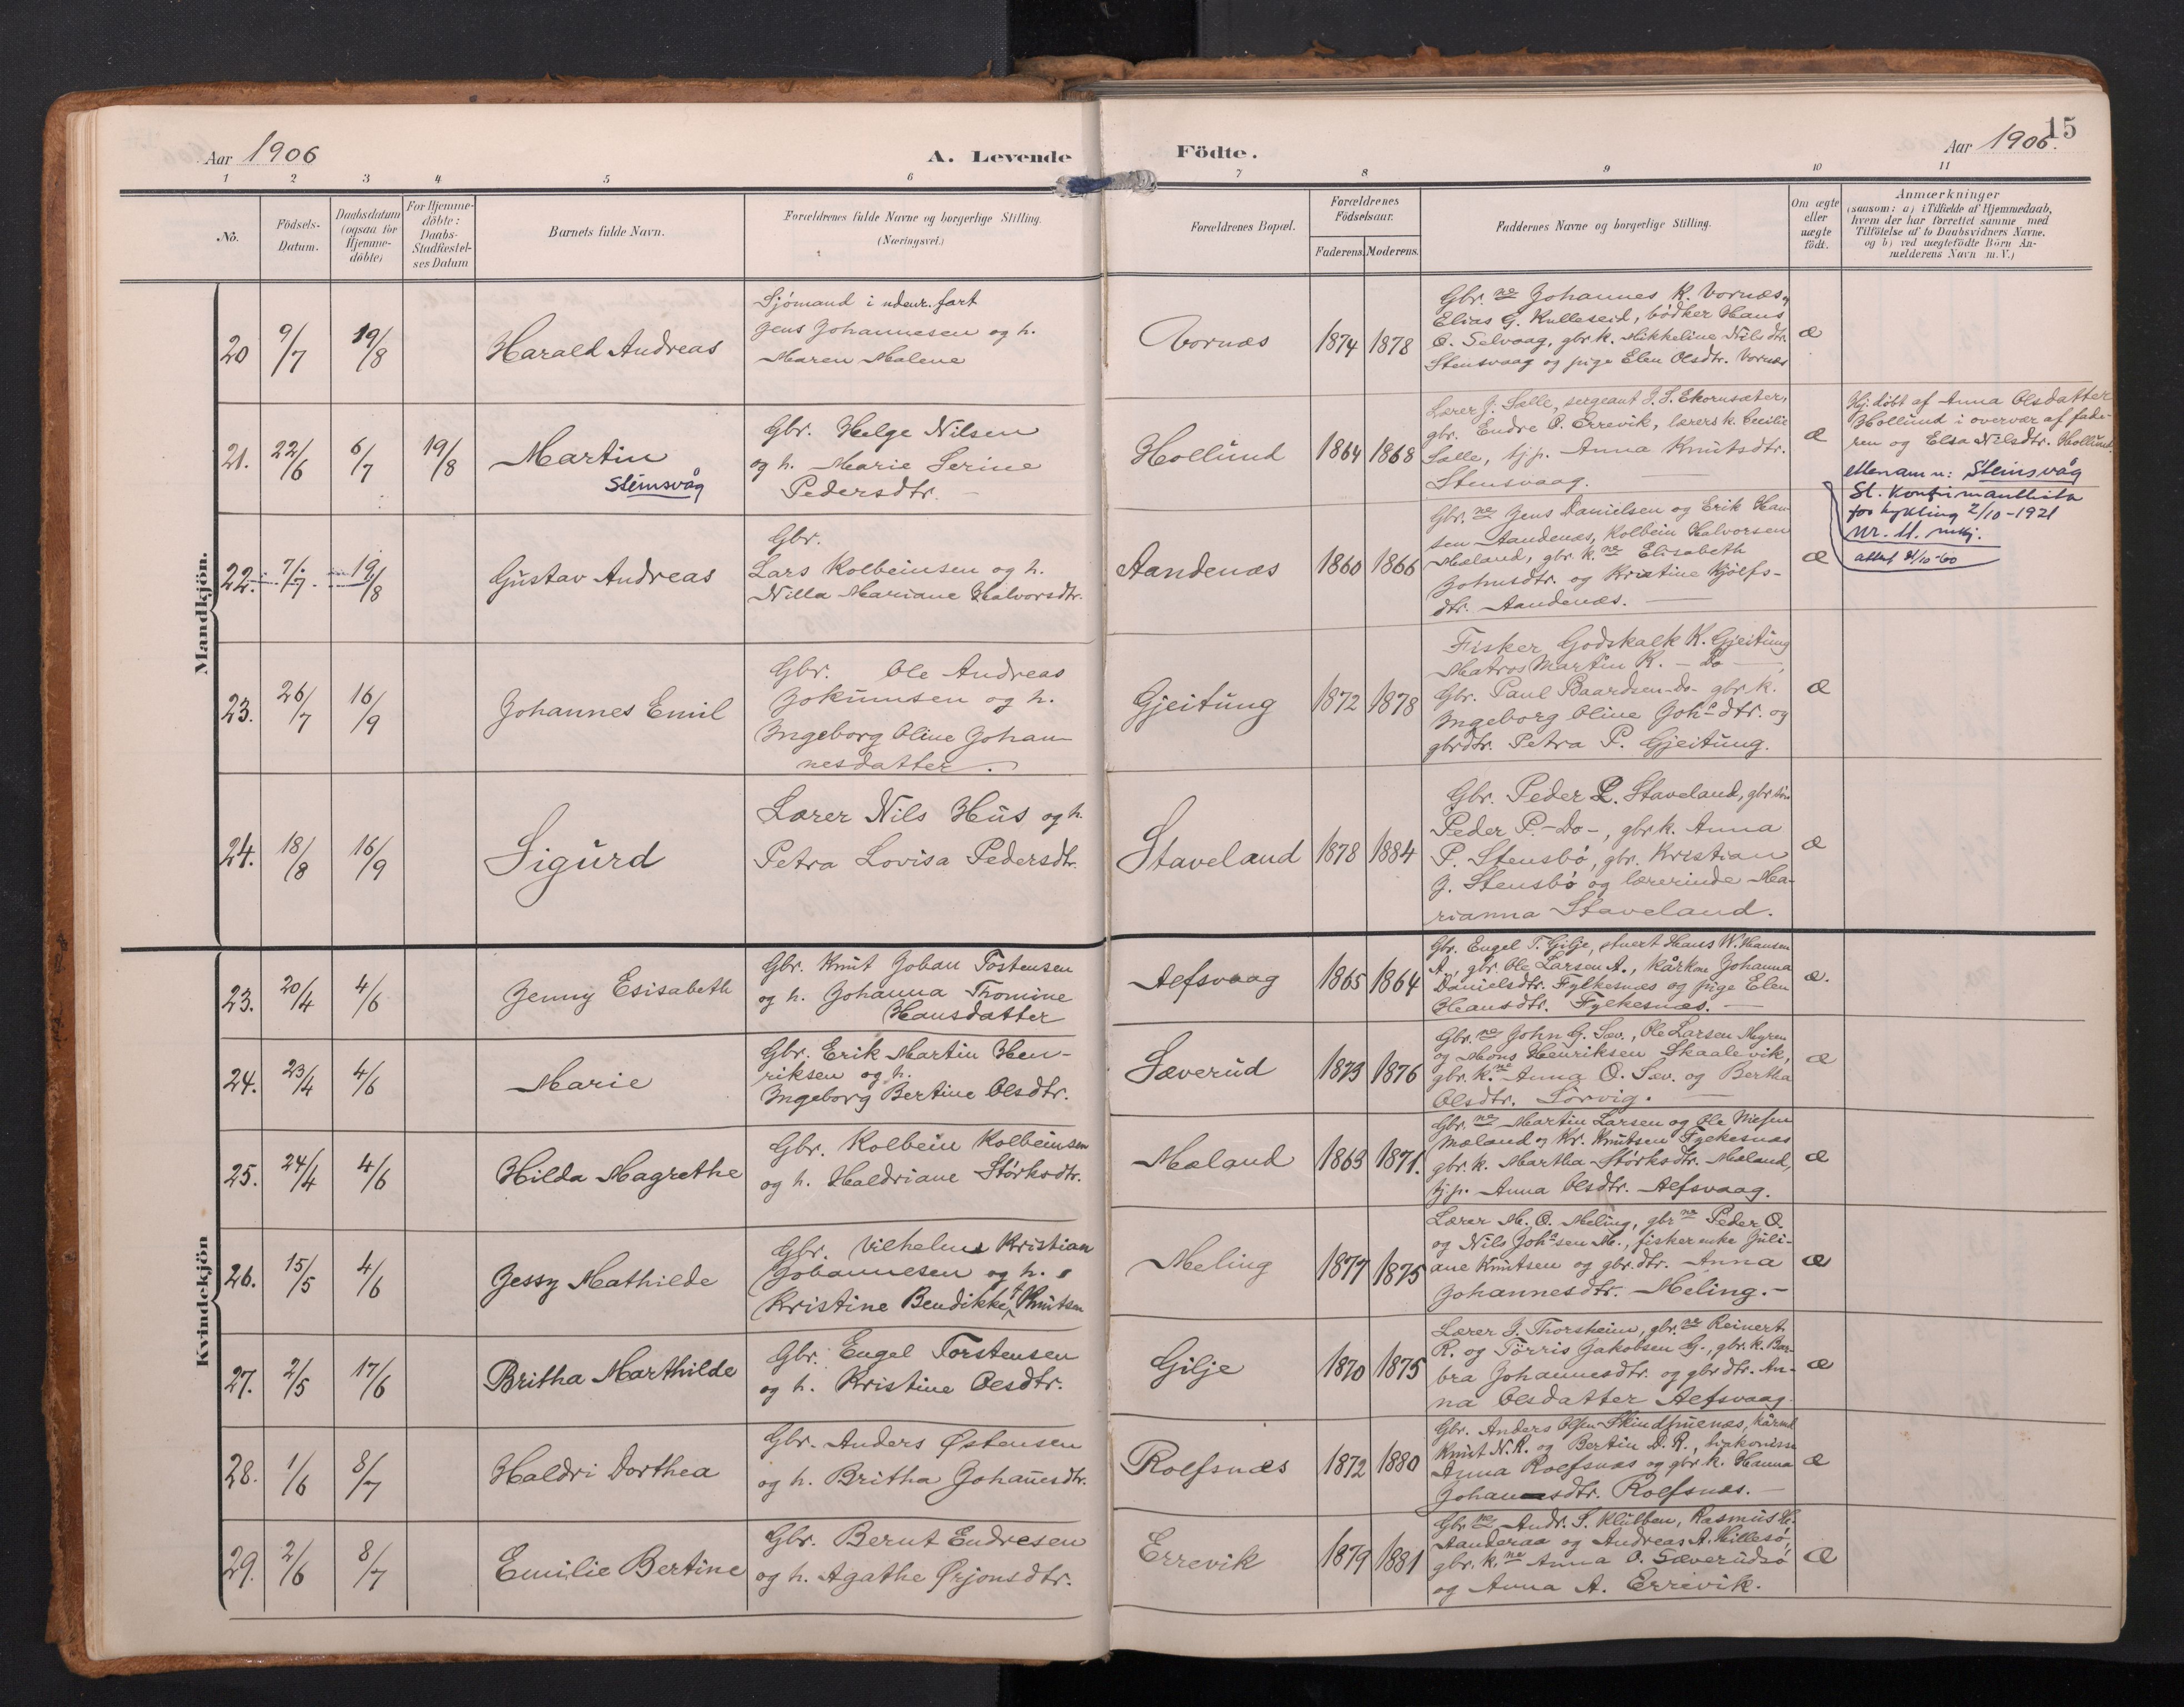 Aar 1906
A. Levende
Födte.
15
Aar 1906.
1 2 3 4 5 6 7 8 9 10 11
No.
Födsels-
Datum.
Daabsdatum
(ogsaa for
Hjemme-
döbte)
For Hjemme-
döbte:
Daabs-
Stadfæstel-
ses Datum
Barnets fulde Navn.
Forældrenes fulde Navne og borgerlige Stilling.
(Næringsvei.)
Forældrenes Bopæl.
Forældrenes
Födselsaar.
Faderens. Moderens.
Faddernes Navne og borgerlige Stilling.
Om ægte
eller
uægte
födt.
Anmærkninger
(saasom: a) i Tilfælde af Hjemmedaab,
hvem der har forrettet samme med
Tilföielse af to Daabsvidners Navne.
og b) ved uægtefödte Börn An-
melderens Navn m. V.)
Mandkjön.
20 9/7 19/8
Harald Andreas
Sjömand i udenr. fart
Jens Johannesen og h.
Maren Malene
Vornæs
1874 1878
Gbr.ne Johannes K. Vornæs,
Elias G. Kulleseid, bödker Hans
O. Selvaag, gbr. k. Mikkeline Nilsdtr.
Stensvaag og pige Elen Olsdtr. Vornæs
æ
21. 22/6 6/7 19/8
Martin
Steinsvåg
Gbr. Helge Nilsen
og h. Marie Serine
Pedersdtr.
Hollund
1864 1868
Lærer J. Salle, sergeant J. S. Ekornsæter,
gbr. Endre O. Errevik, lærers k. Cecilie
Salle, tj.p. Anna Knutsdtr.
Stensvaag.
æ
Hj. döbt af Anna Olsdatter
Hollund i overvær af fade-
ren og Elsa Nilsdtr. Hollund.
ettenamn: Steinsvåg
Sl. Konfirmantlista
for Bykling 2/10-1921
nr. 11. mkj.
attest 21/10-60
22. 7/7. 19/8
Gustav Andreas
Gbr.
Lars Kolbeinsen og h.
Nilla Mariane Halvorsdtr.
Aandenæs
1860 1866
Gbr.ne Jens Danielsen og Erik Han-
sen Aandenæs, Kolbein Halvorsen
Mæland, gbr. k.ne Elisabeth
Johnsdtr. og Kristine Kjölfs-
dtr. Aandenæs.
æ
23. 26/7 16/9
Johannes Emil
Gbr. Ole Andreas
Jokumsen og h.
Ingeborg Oline Johan-
nesdatter.
Gjeitung
1872 1878
Fisker Godskalk K. Gjeitung
Matros Martin K. - Do -,
Gbr. Paul Baardsen -do- gbr. k.
Ingeborg Oline Johs-dtr. og
gbrdtr. Petra P. Gjeitung.
æ
24. 18/8 16/9
Sigurd
Lærer Nils Hus og h.
Petra Lovisa Pedersdtr.
Staveland
1878 1884
Gbr. Peder L. Staveland, gbr.sön
Peder P. -Do-, gbr. k. Anna
P. Stensbö, gbr. Kristian
J. Stensbö og lærerinde Ma-
rianna Staveland.
æ
Kvindekjön
23. 20/4 4/6
Jenny Esisabeth
Gbr. Knut Johan Tostensen
og h. Johanna Thomine
Hansdatter
Alfsvaag
1865 1864
Gbr. Engel T. Gilje, stuert Hans W. Hansen
A., gbr. Ole Larsen A., kårkone Johanna
Danielsdtr. Fylkesnæs og pige Elen
Hansdtr. Fylkesnæs.
æ.
24. 23/4 4/6
Marie
Gbr. Erik Martin Hen-
riksen og h.
Ingeborg Bertine Olsdtr.
Sæverud
1873 1876
Gbr.ne John G. Sæv., Ole Larsen Myren
og Mons Henriksen Skaalevik,
gbr. k.ne Anna O. Sæv. og Bertha
Olsdtr. Sörvig.
æ
25. 24/4 4/6
Hilda Magrethe
Gbr. Kolbein Kolbeinsen
og h. Haldriane Störksdtr.
Mæland
1863 1871.
Gbr.ne Martin Larsen og Ole Nielsen
Mæland og Kr. Knutsen Fylkesnæs
gbr. k. Martha Störksdtr. Mæland,
tj.p. Anna Olsdtr. Alfsvaag.
æ
26. 15/5 4/6
Jessy Mathilde
Gbr. Vilhelm Kristian
Johannesen og h.
Kristine Bendikke Knutsen
Meling
1877 1875
Lærer M. O. Meling, gbr.ne Peder O.
og Nils Johs-sen M., fisker enke Juli-
ane Knutsen og gbr.dtr. Anna
Johannesdtr. Meling.-
æ
27. 2/5 17/6
Britha Marthilde
Gbr. Engel Torstensen
og h. Kristine Olsdtr.
Gilje
1870 1875
Lærer J. Thorsheim, gbr.ne Reinert
R. og Törris Jakobsen G., gbr. k. Bar-
bra Johannesdtr. og gbrdtr. An-
na Olsdatter Alfsvaag.
æ
28. 1/6 8/7
Haldri Dorthea
Gbr. Anders Østensen
og h. Britha Johanesdtr.
Rolfsnæs
1872 1880
Gbr. Anders Olsen Skindhuenæs, kårmd
Knut N. R. og Bertin D. R., diakonisse
Anna Rolfsnæs og gbr. k. Hanna
Johannesdtr. Rolfsnæs.
æ
29. 2/6 8/7
Emilie Bertine
Gbr. Bernt Endresen
og h. Agathe Ørjonsdtr.
Errevik
1879 1881
Gbr.ne Andr. S. Klubben, Rasmus H.
Aanderaa og Andreas A. Killesö,
gbr. k.ne Anna O. Sæverudsö
og Anna A. Errevik.
æ